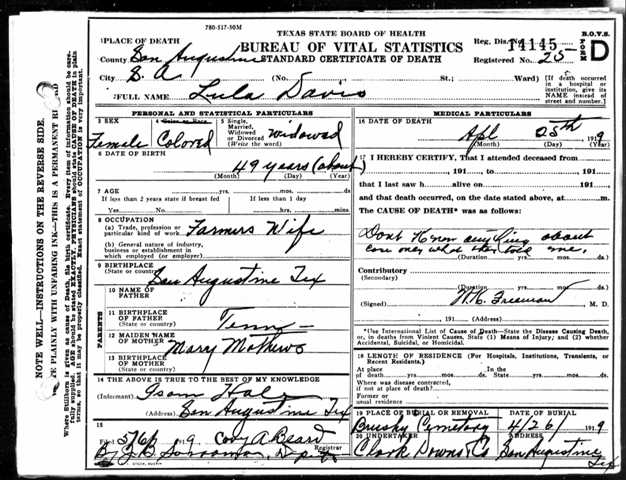 780-517-30M
TEXAS STATE BOARD OF HEALTH
BUREAU OF VITAL STATISTICS
STANDARD CERTIFICATE OF DEATH
Reg. Dis. No. 14145
Registered No. 25
B.O.V.S.
FORM D
1 PLACE OF DEATH
County San Augustine
City S. A. (No. St.; Ward)
(If death occurred in a hospital or institution, give its NAME instead of street and number.)
2 FULL NAME Lula Davis
PERSONAL AND STATISTICAL PARTICULARS
3 SEX Female
4 Color or Race Colored
5 Single, Married, Widowed or Divorced (Write the word) Widowed
6 DATE OF BIRTH
49 years (about)
(Month) (Day) (Year)
7 AGE yrs. mos. ds.
If less than 2 years state if breast fed
If less than 1 day
Yes No hrs. mins.
8 OCCUPATION
(a) Trade, profession or particular kind of work Farmers Wife
(b) General nature of industry, business or establishment in which employed (or employer)
9 BIRTHPLACE
(State or country) San Augustine Tex
PARENTS
10 NAME OF FATHER
11 BIRTHPLACE OF FATHER
(State or country) Tenn
12 MAIDEN NAME OF MOTHER Mary Mathews
13 BIRTHPLACE OF MOTHER
(State or country)
14 THE ABOVE IS TRUE TO THE BEST OF MY KNOWLEDGE
(Informant) Isom
(Address) San Augustine Tex
15
Filed 5/6/ 1919 Cary A Beard
Registrar
By J B
MEDICAL PARTICULARS
16 DATE OF DEATH
Apl 25th 1919
(Month) (Day) (Year)
17 I HEREBY CERTIFY, That I attended deceased from
, 191 to , 191
that I last saw h alive on , 191
and that death occurred, on the date stated above, at m.
The CAUSE OF DEATH* was as follows:
Dont Know anything about
case only what they told me,
(Duration yrs. mos. ds.)
Contributory
(Secondary)
(Duration yrs. mos. ds.)
(Signed) Freeman M. D.
191 (Address)
*Use International List of Cause of Death—State the Disease Causing Death, or, in deaths from Violent Causes, State (1) Means of Injury; and (2) whether Accidental, Suicidal, or Homicidal.
18 LENGTH OF RESIDENCE (For Hospitals, Institutions, Transients, or Recent Residents.)
At place of death yrs. mos. ds.
In the State yrs. mos. ds.
Where was disease contracted, if not at place of death?
Former or usual residence
19 PLACE OF BURIAL OR REMOVAL
Brushy Cemetery
DATE OF BURIAL
4/26/ 1919
20 UNDERTAKER
Clark Downs Co
ADDRESS
San Augustine Tex
NOTE WELL—INSTRUCTIONS ON THE REVERSE SIDE.
PLAINLY WITH UNFADING INK—THIS IS A PERMANENT